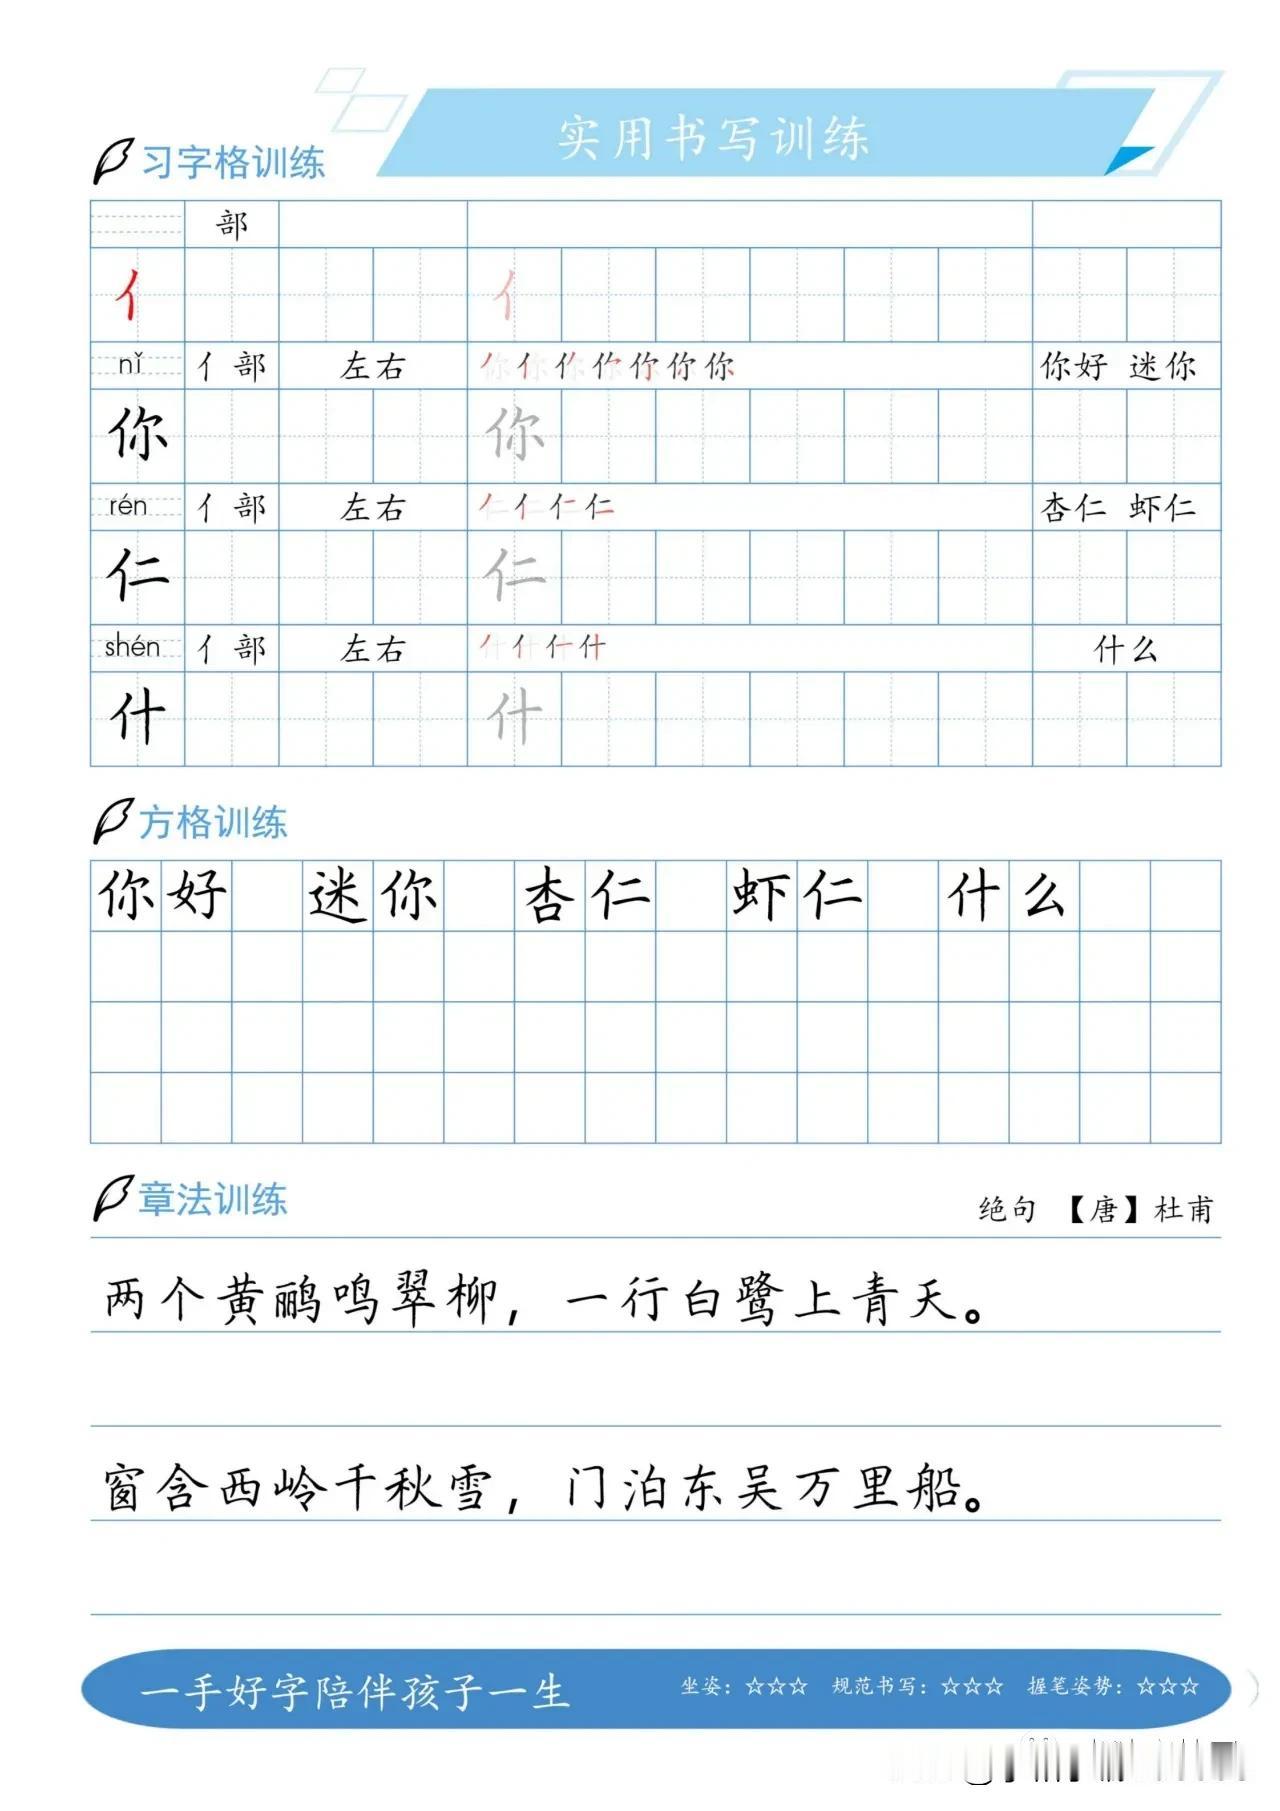 实用书写训练
习字格训练
部
亻 亻
nǐ 亻部 左右 你你你你你你你 你好 迷你
你 你
rén 亻部 左右 仁仁仁仁 杏仁 虾仁
仁 仁
shén 亻部 左右 什什什什 什么
什 什
方格训练
你好 迷你 杏仁 虾仁 什么
章法训练
绝句 【唐】杜甫
两个黄鹂鸣翠柳，一行白鹭上青天。
窗含西岭千秋雪，门泊东吴万里船。
一手好字陪伴孩子一生 坐姿：☆☆☆ 规范书写：☆☆☆ 握笔姿势：☆☆☆